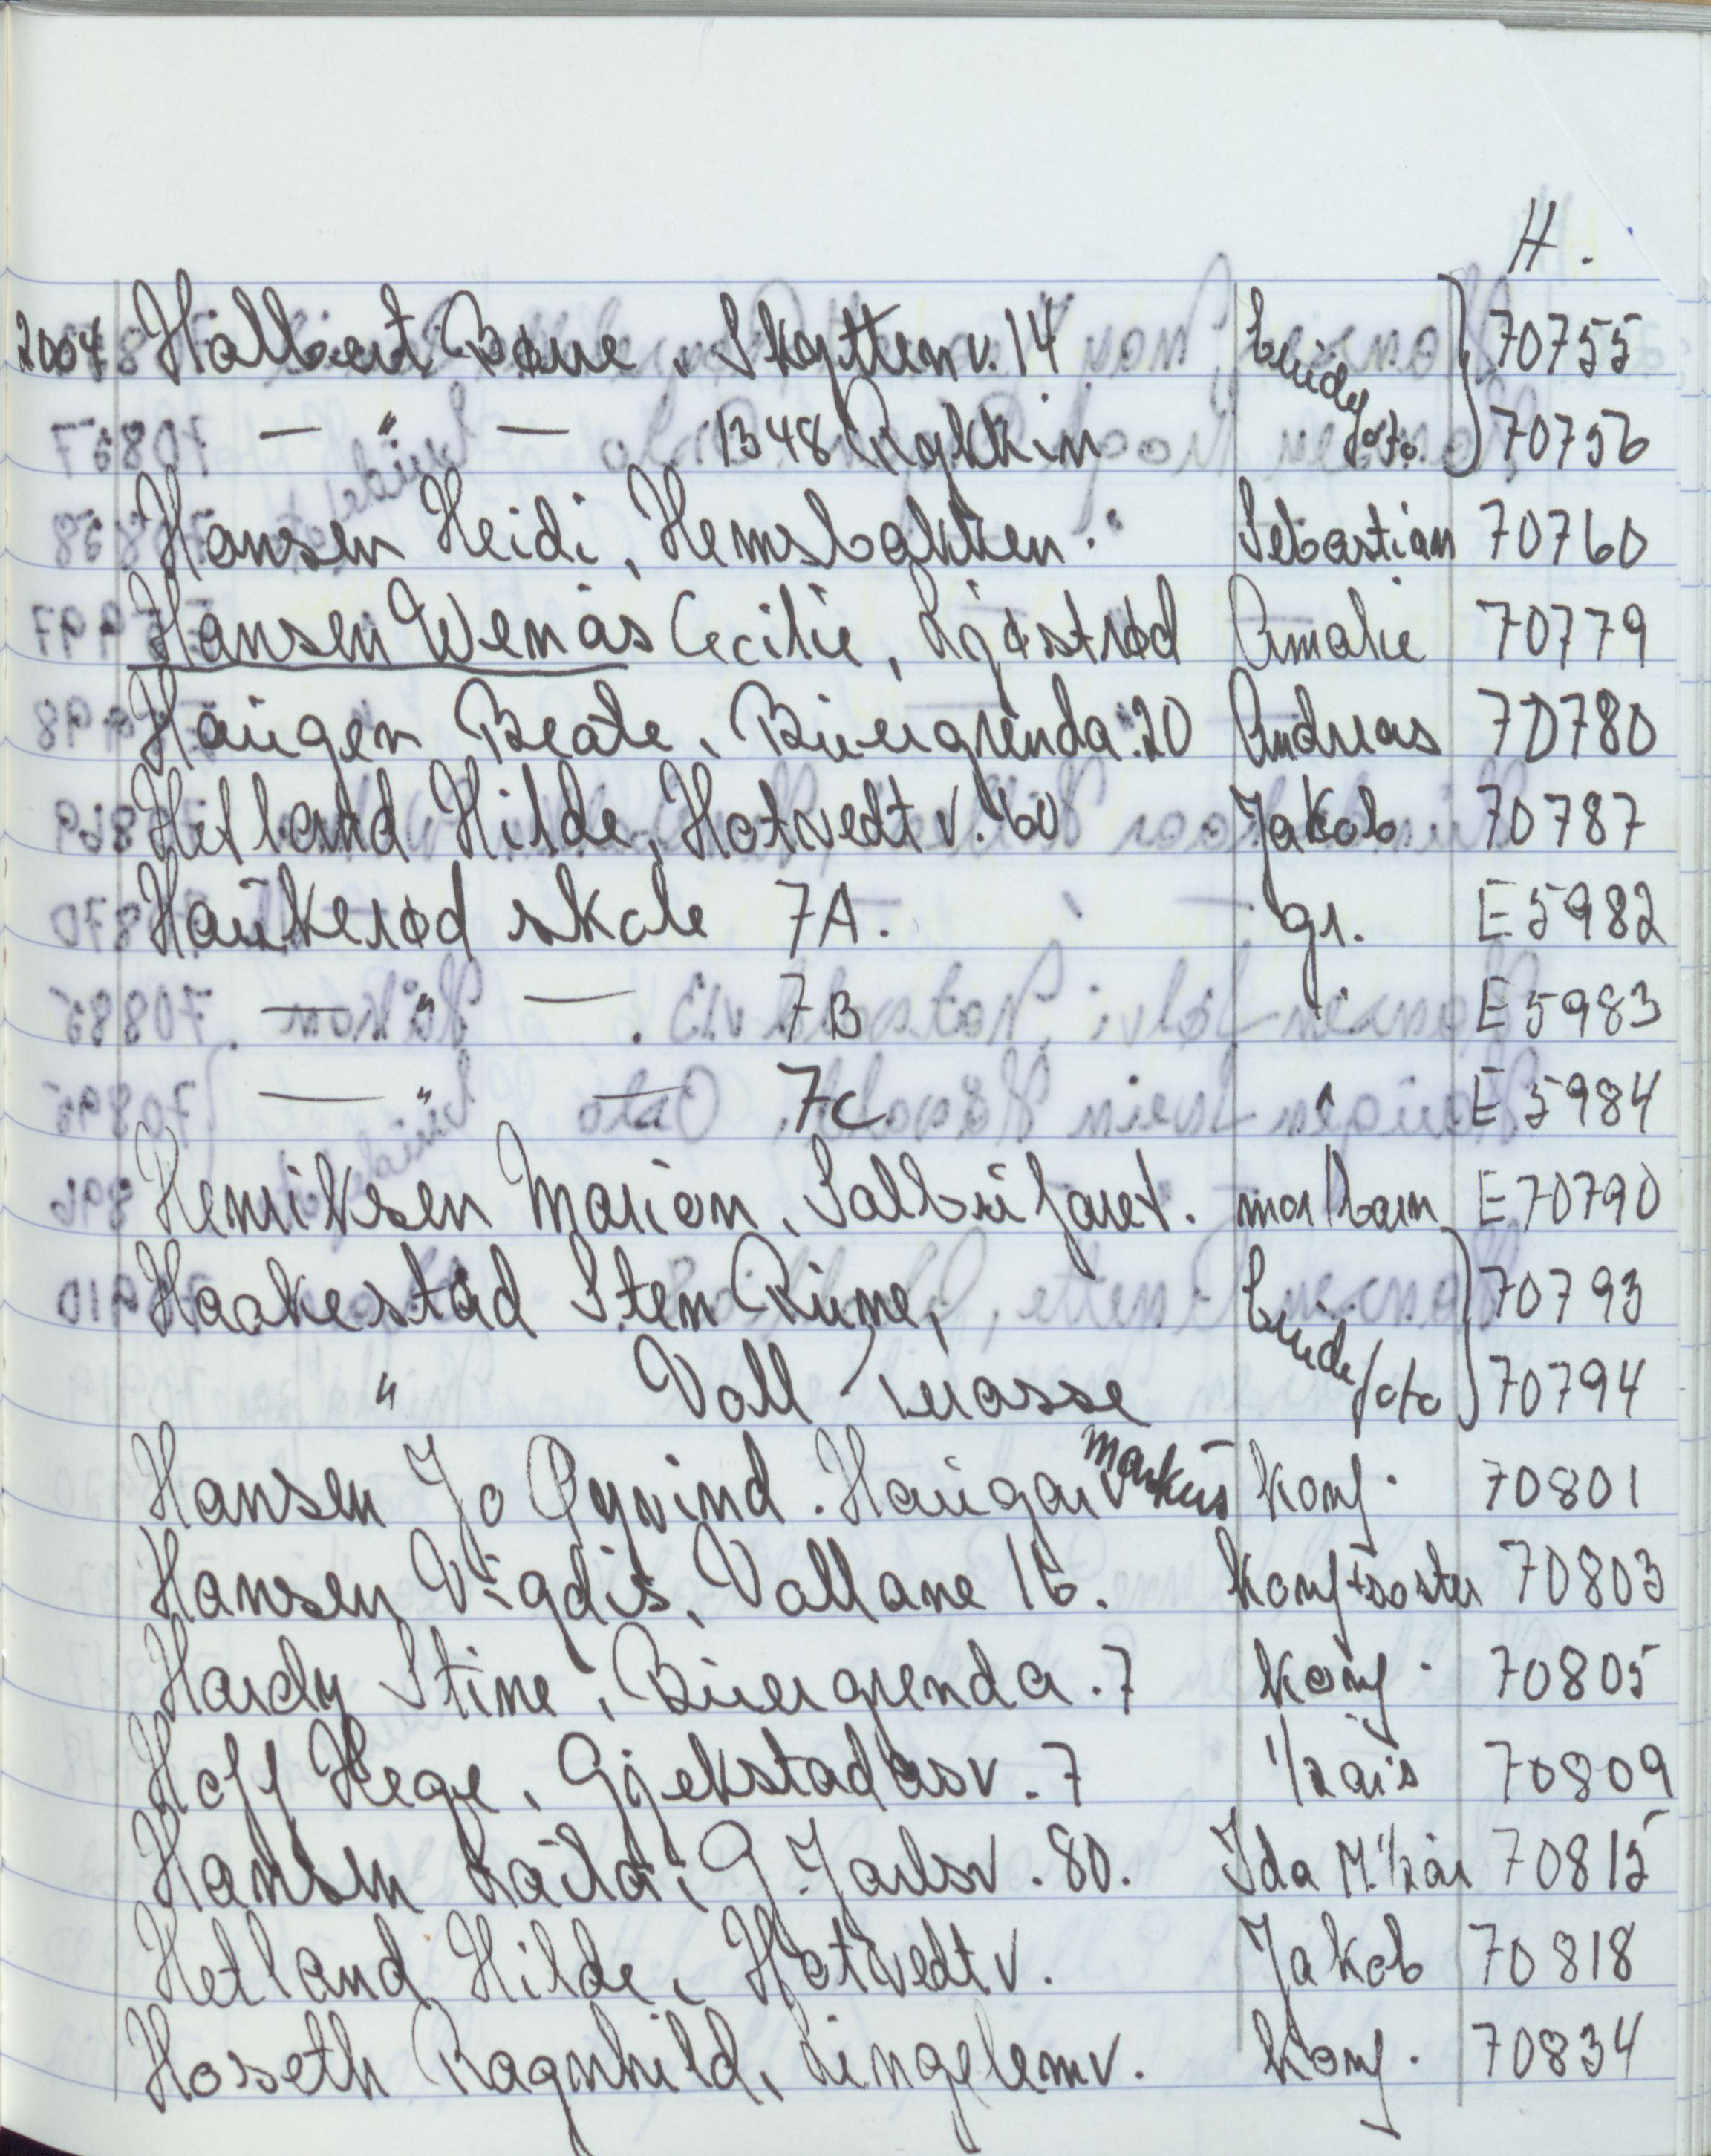 H.
2004 Halbert Børre, Skytten v. 14 brude 70755
— " — 1348 Rykkin foto. 70756
Hansen Heidi, Hemsbakken. Sebastian 70760
Hansen Wenås Cecilie, Ljøstrød Amalie 70779
Haugen Beate, Buergrenda 20 Andreas 70780
Hetland Hilde, Hotvedt v. 60 Jakob 70787
Haukerød skole 7A. gr. E5982
— " — . 7B " E5983
— " — 7C " E5984
Henriksen Marion, Salbufaret. mor/barn E70790
Haakestad Sten Rune, brude 70793
" Voll foto 70794
Hansen Jo Øyvind. Haugar v Markus konf. 70801
Hansen Vigdis, Vollane 16. konf+søster 70803
Hardy Stine, Buergrenda. 7 konf. 70805
Hoff Hege, Gjekstadåsv. 7 1/2 års 70809
Hansen Laila, G. Jarlsv. 80. Ida M. 1/2 år 70815
Hetland Hilde, Hotvedt v. Jakob 70818
Hosseth Ragnhild, Lingelemv. konf. 70834